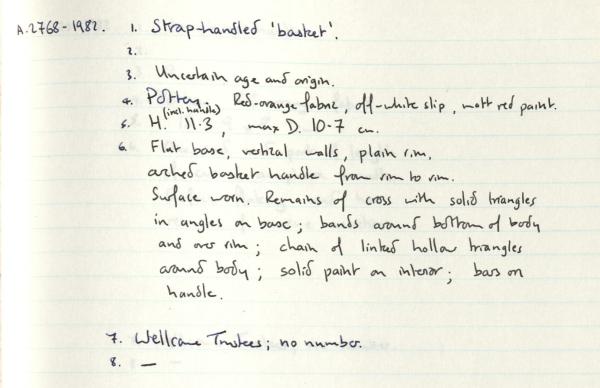 A.2768-1982. 1. Strap-handled 'basket'.
2.
3. Uncertain age and origin.
4. Pottery. Red-orange fabric, off-white slip, matt red paint.
5. H. (incl. handle) 11.3, max D. 10.7 cm.
6. Flat base, vertical walls, plain rim,
arched basket handle from rim to rim.
Surface worn. Remains of cross with solid triangles
in angles on base; bands around bottom of body
and over rim; chain of linked hollow triangles
around body; solid paint on interior; bars on
handle.
7. Wellcome Trustees; no number.
8. —